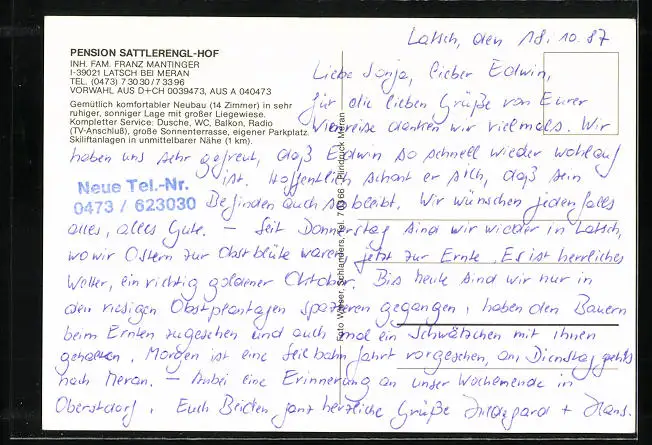 PENSION SATTLERENGL-HOF
INH. FAM. FRANZ MANTINGER
I-39021 LATSCH BEI MERAN
TEL. (0473) 73030/73396
VORWAHL AUS D+CH 0039473, AUS A 040473
Gemütlich komfortabler Neubau (14 Zimmer) in sehr
ruhiger, sonniger Lage mit großer Liegewiese.
Kompletter Service: Dusche, WC, Balkon, Radio
(TV-Anschluß), große Sonnenterrasse, eigener Parkplatz.
Skiliftanlagen in unmittelbarer Nähe (1 km).
Neue Tel.-Nr.
0473 / 623030
Foto Wieser, Schlanders, Tel. 70166 - Rundruck Meran
Latsch, den 18.10.87
Liebe Sonja, lieber Edwin,
für die lieben Grüße von Eurer
Wienreise danken wir vielmals. Wir
haben uns sehr gefreut, daß Edwin so schnell wieder wohlauf
ist. Hoffentlich schont er sich, daß sein
Befinden auch so bleibt. Wir wünschen jedenfalls
alles, alles Gute. — Seit Donnerstag sind wir wieder in Latsch,
wo wir Ostern zur Obstblüte waren, jetzt zur Ernte. Es ist herrliches
Wetter, ein richtig goldener Oktober. Bis heute sind wir nur in
den riesigen Obstplantagen spazieren gegangen, haben den Bauern
beim Ernten zugesehen und auch mal ein Schwätzchen mit ihnen
gehalten. Morgen ist eine Seilbahnfahrt vorgesehen, am Dienstag geht's
nach Meran. — Anbei eine Erinnerung an unser Wochenende in
Oberstdorf. Euch Beiden ganz herzliche Grüße Hildegard + Hans.